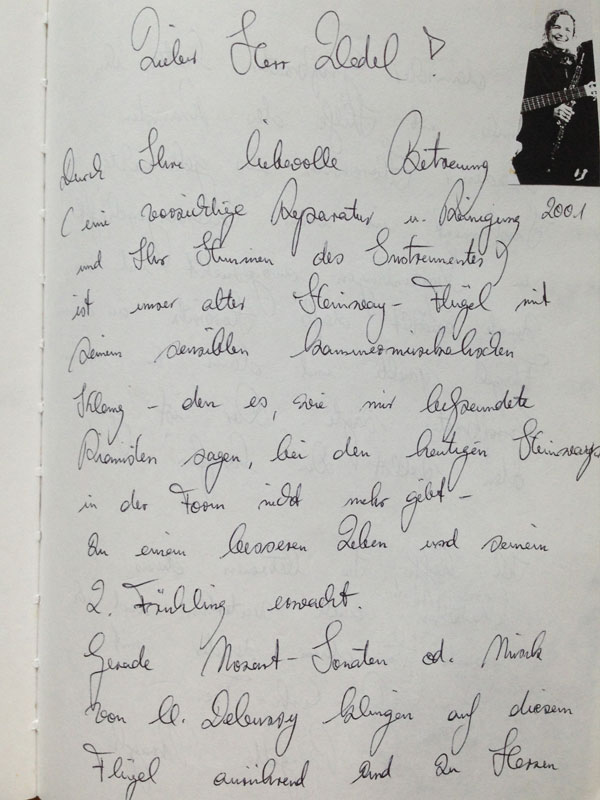 Lieber Herr Zledel
Durch Ihre liebevolle Betreuung
(eine vorsichtige Reparatur u. Reinigung
2001
und Ihr Stimmen des Instrumentes)
ist unser alter Steinway-Flügel mit
seinem sensiblen kammermusikalischen
Klang - den es, wie mir befreundete
Pianisten sagen, bei den heutigen Steinways
in der Form nicht mehr gibt -
zu einem besseren Leben und seinem
2. Frühling erwacht.
Gerade Mozart-Sonaten od. Musik
von Cl. Debussy klingen auf diesem
Flügel anrührend und zu Herzen